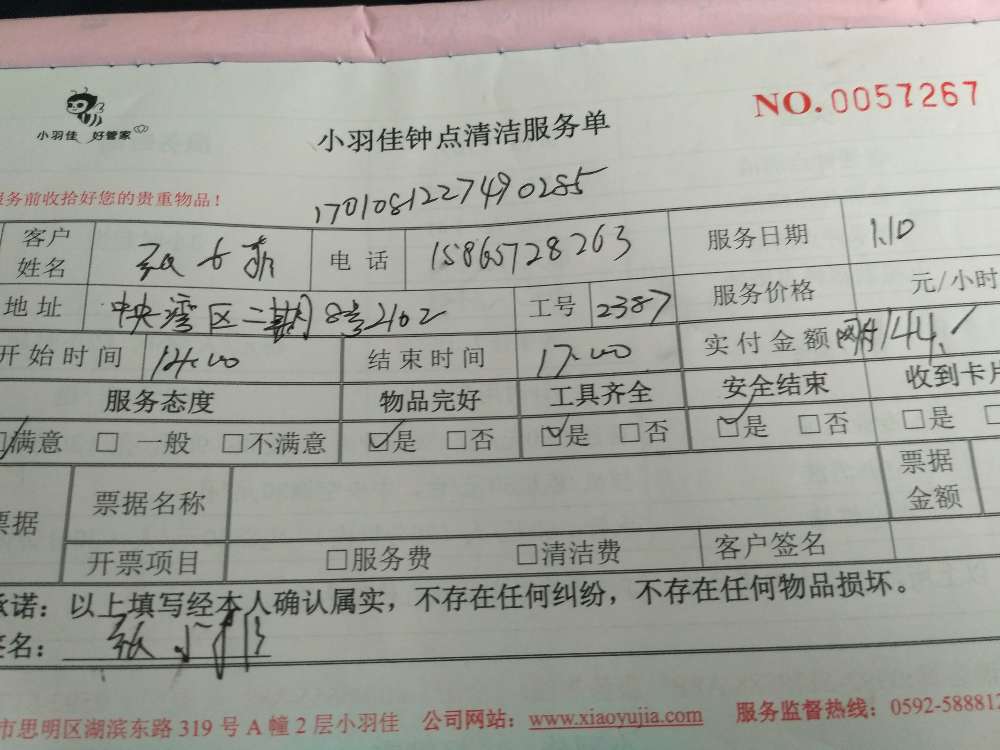 小羽佳 好管家
小羽佳钟点清洁服务单
NO.0057267
服务前收拾好您的贵重物品!
1701081227490285
客户姓名 电话 15865728263 服务日期 1.10
地址 中央湾区二期8号2102 工号 2387 服务价格 元/小时
开始时间 14:00 结束时间 17:00 实付金额 144
服务态度 物品完好 工具齐全 安全结束 收到卡片
☑满意 □ 一般 □不满意 ☑是 □否 ☑是 □否 ☑是 □否 □是 □
票据 票据名称 票据金额
开票项目 □服务费 □清洁费 客户签名
承诺:以上填写经本人确认属实,不存在任何纠纷,不存在任何物品损坏。
签名:
市思明区湖滨东路 319 号 A 幢 2 层小羽佳 公司网站:www.xiaoyujia.com 服务监督热线:0592-588812